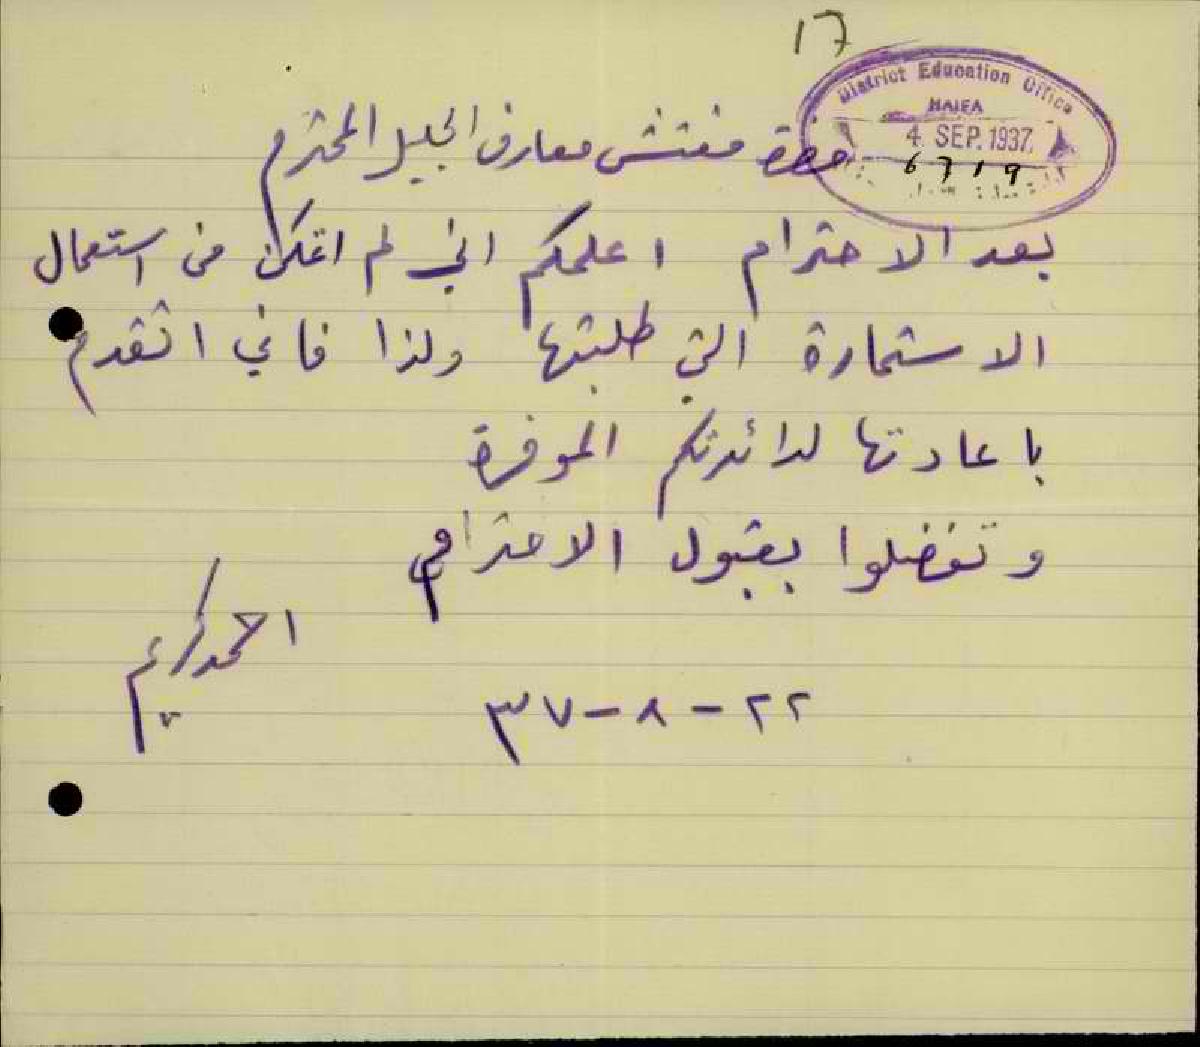 17
District Education Office
HAIFA
4. SEP. 1937.
6719
حضرة مفتش معارف الجليل المحترم
بعد الاحترام اعلمكم اني لم اتمكن من استعمال
الاستمارة التي طلبتها ولذا فاني اتقدم
باعادتها لدائرتكم الموقرة
وتفضلوا بقبول الاحترام
احمد كريم
٢٢-٨-٣٧